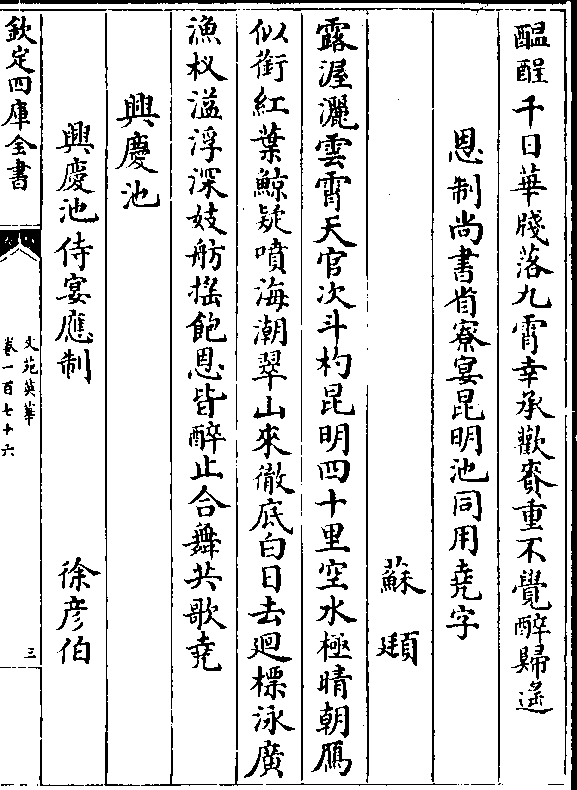 醖醒千日華牋落九霄幸承歡賚重不覺醉歸遙
恩制尚書省寮宴昆明池同用堯字
蘇頲
露渥灑雲霄天官次斗杓昆明四十里空水極晴朝鴈
似銜紅葉鯨疑噴海潮翠山來徹底白日去迴標泳廣
漁杈溢浮深妓舫搖飽恩皆醉止合舞共歌堯
興慶池
興慶池侍宴應制 徐彦伯
欽定四庫全書
文苑英華
卷一百七十六
三